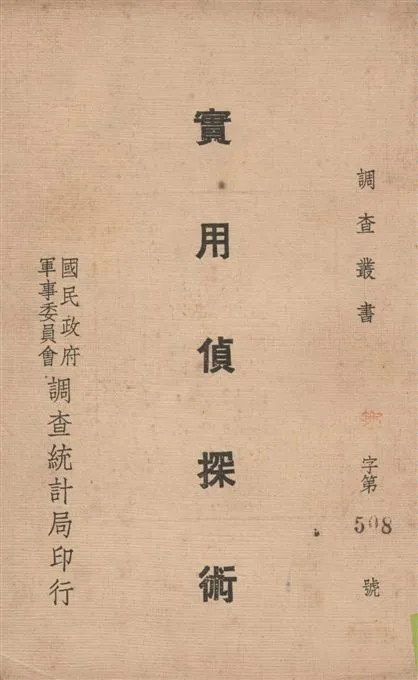 調查叢書
字第508號
實用偵探術
國民政府
軍事委員會
調查統計局印行